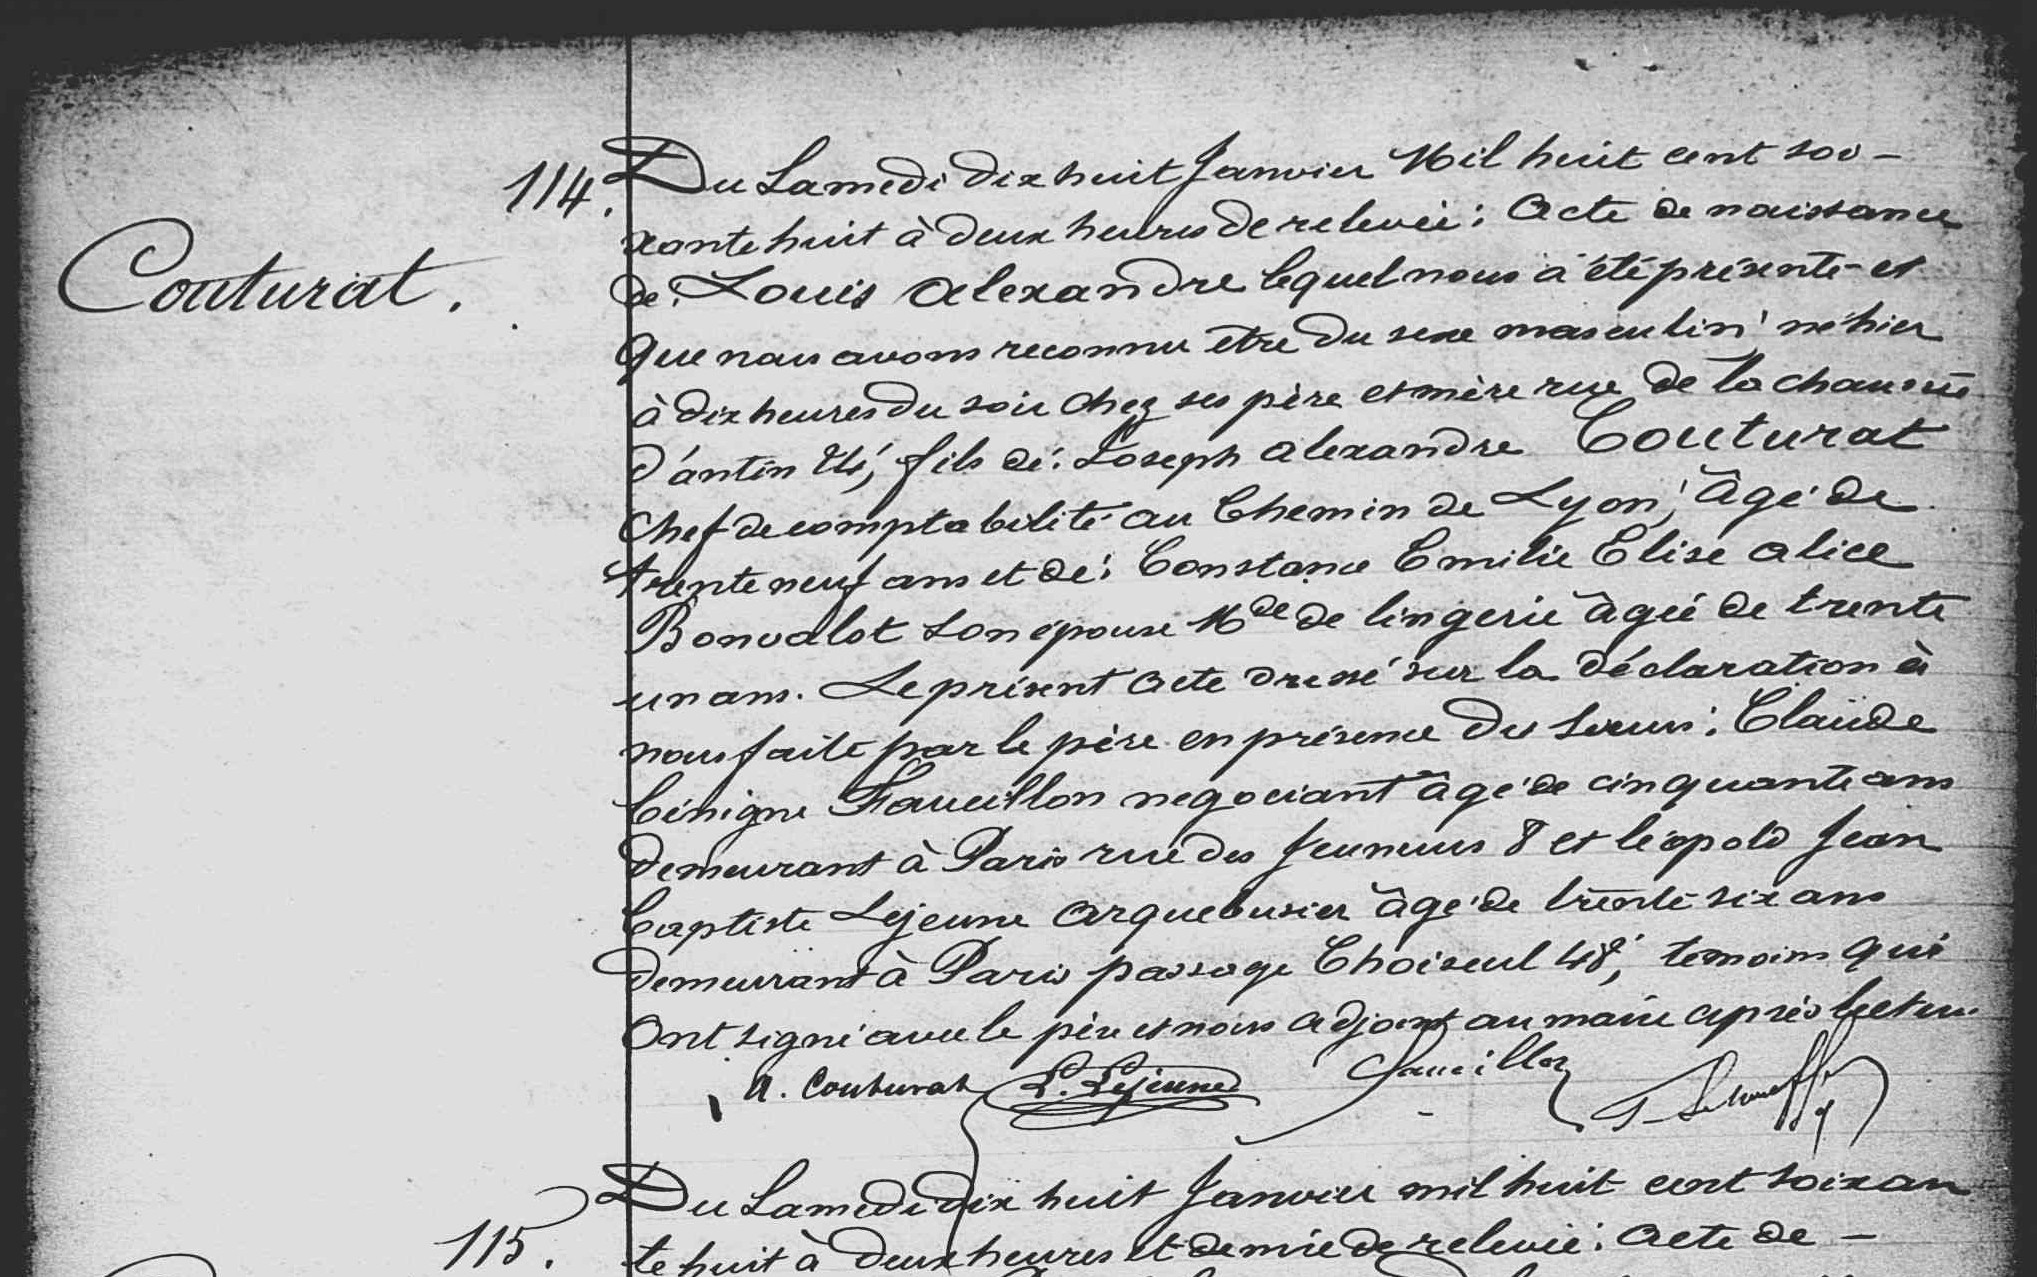 114.
Couturat.
Du Samedi dix huit Janvier Mil huit cent soi-
xante huit à deux heures de relevée; Acte de naissance
de: Louis Alexandre lequel nous a été présenté et
que nous avons reconnu être du sexe masculin né hier
à dix heures du soir chez ses père et mère rue de la chaussée
d'antin 24, fils de: Joseph Alexandre Couturat
Chef de comptabilité au Chemin de Lyon, âgé de
trente neuf ans et de: Constance Emilie Elise Alice
Bonvalot son épouse Mde de lingerie âgée de trente
un ans. Le présent acte dressé sur la déclaration à
nous faite par le père en présence des Sieurs: Claude
Bénigne Faucillon negociant âgé de cinquante ans
demeurant à Paris rue des Jeuneurs 8 et Léopold Jean
Baptiste Lejeune arquebusier âgé de trente six ans
demeurant à Paris passage Choiseul 48, temoins qui
Ont signé avec le père et nous adjoint au maire après lecture.
A. Couturat L. Lejeune Faucillon
Du Samedi dix huit Janvier mil huit cent soixan
115. te huit à deux heures et demie de relevée; Acte de -